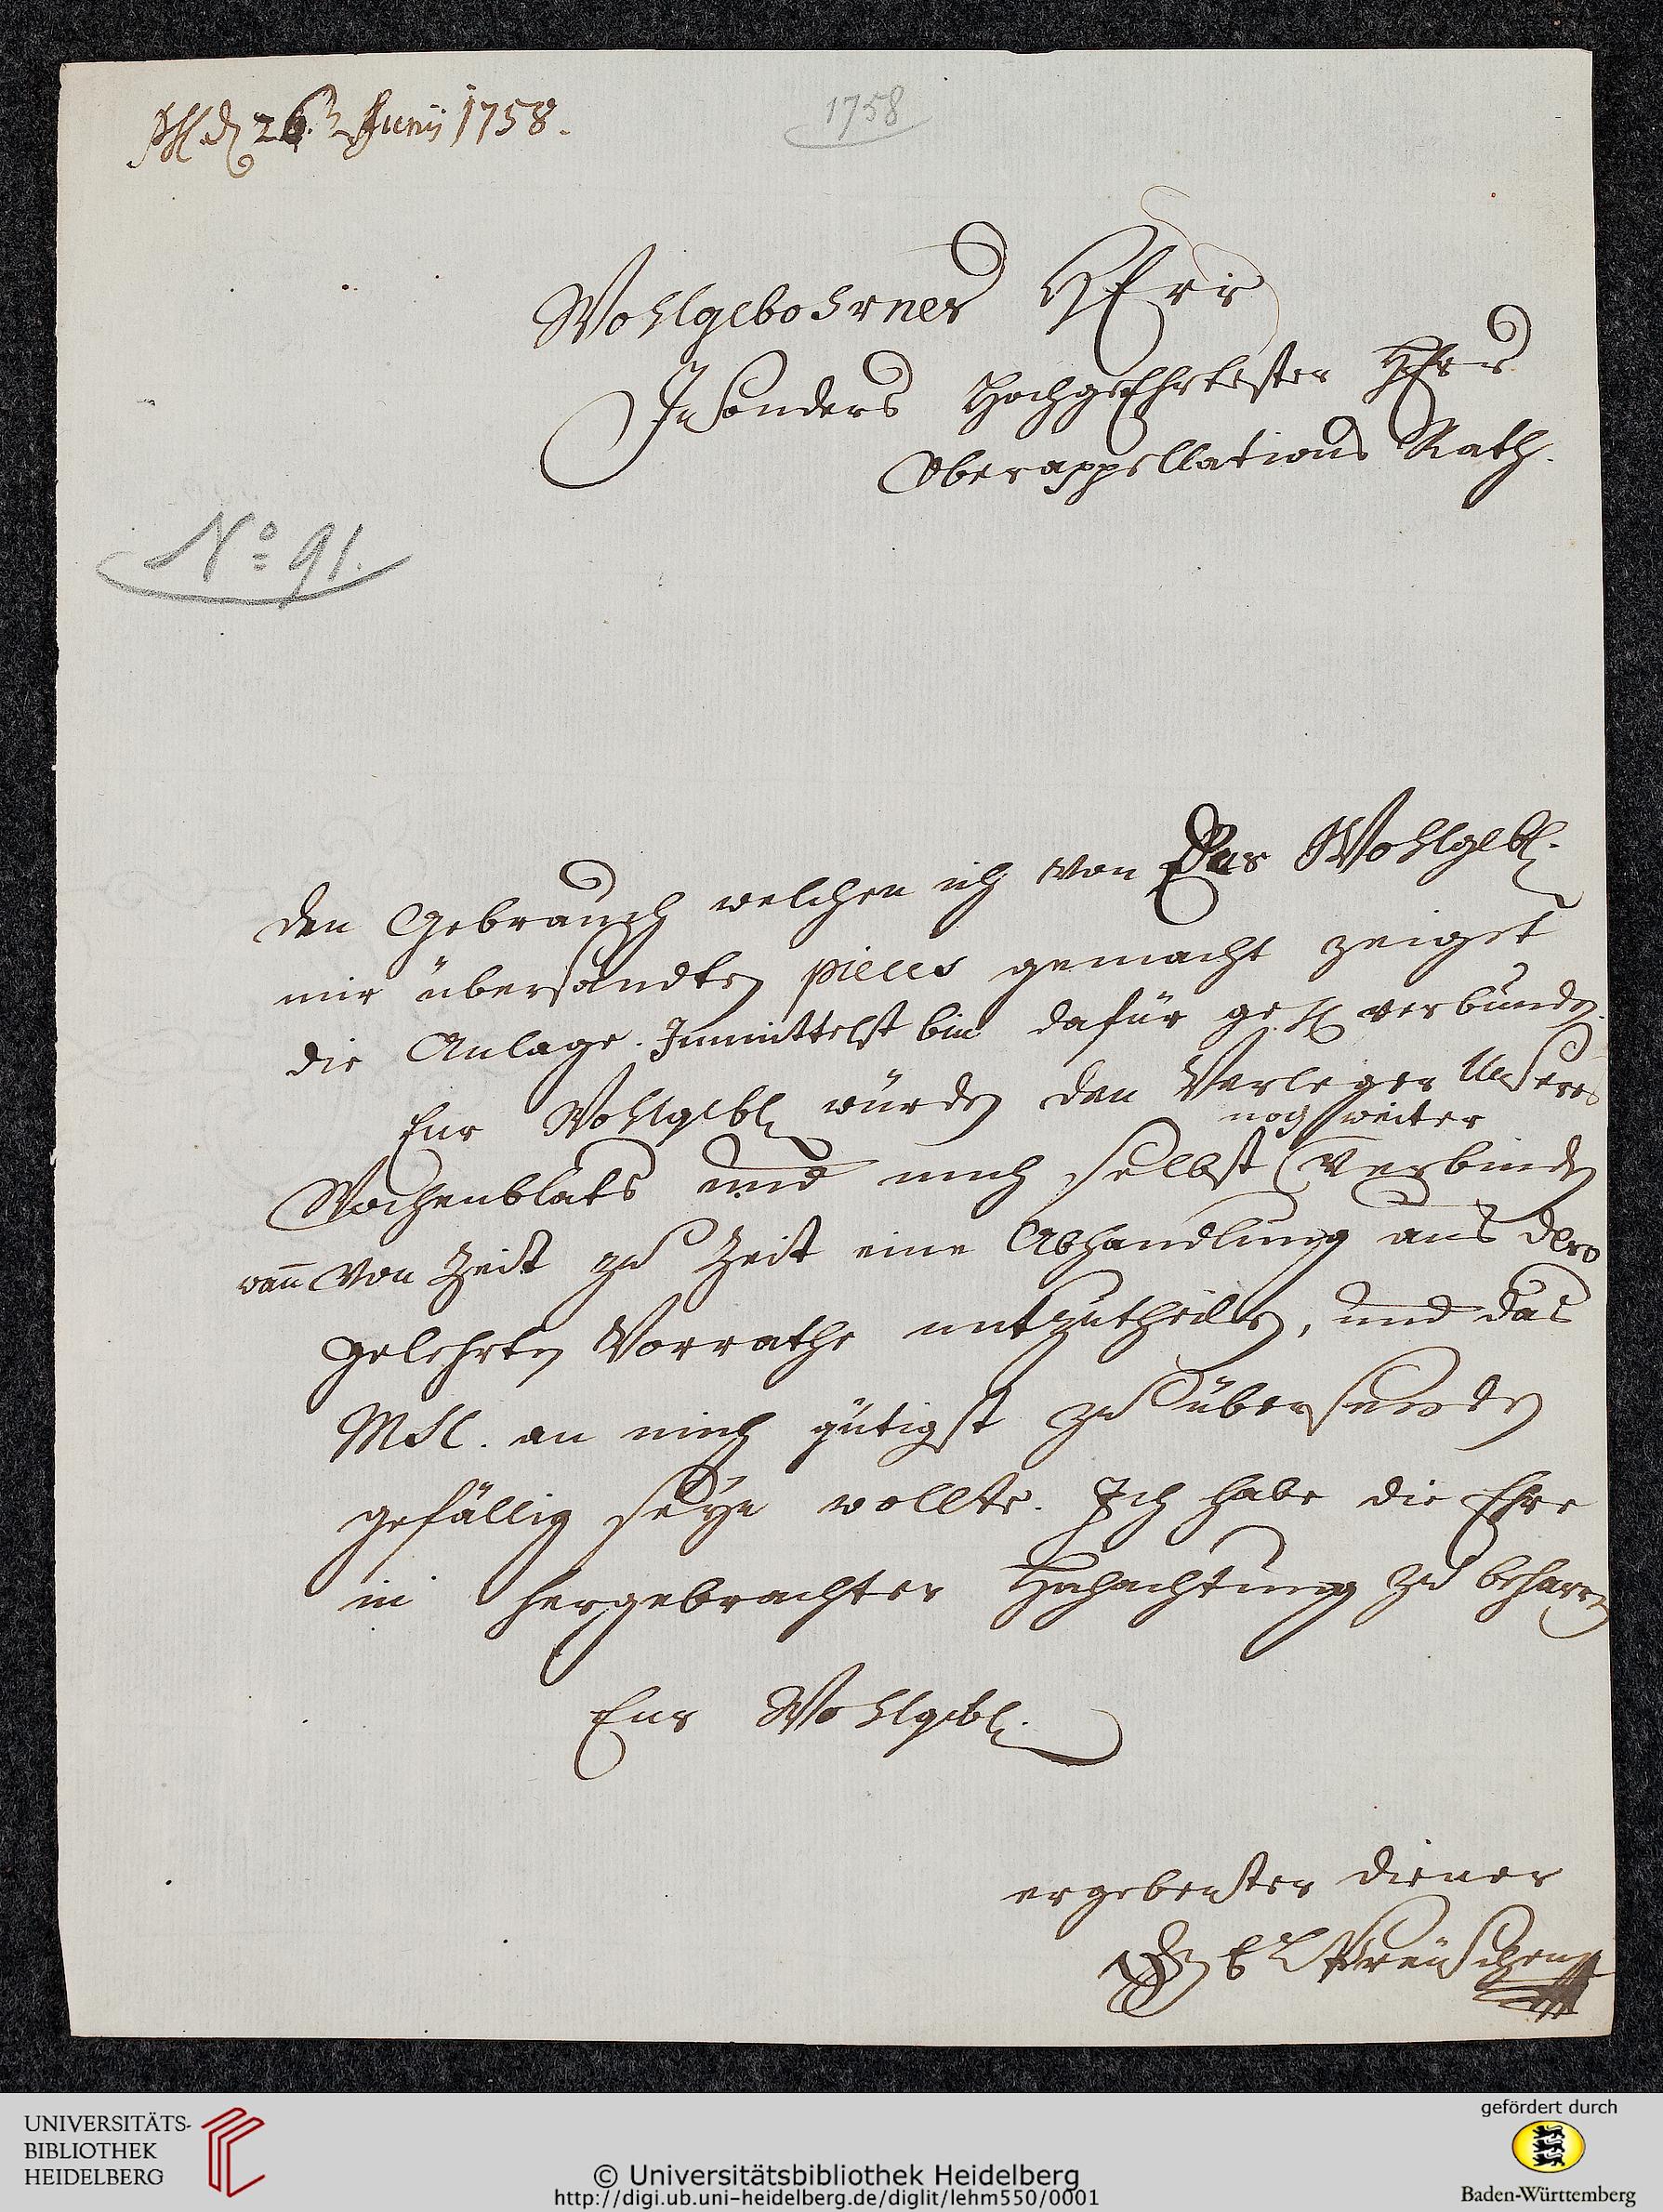 d 26. Junij 1758.
1758
Wohlgebohrner HErr
Insonders HochgeEhrtester HErr
Oberappellations Rath.
No 91.
Den Gebrauch welchen ich von Eur Wohlgebl.
mir übersandten pieces gemacht zeiget
die Anlage. Inmittelst bin dafür verbunden.
Eur Wohlgebl würden den Verleger Unseres
noch weiter
Wochenblats und mich selbst verbinden
wann von Zeit zu Zeit eine Abhandlung aus Dero
gelehrten Vorrathe mitzutheilen, und das
MSC. an mich gütigst zu übersenden
gefällig seyn wollte. Ich habe die Ehre
in hergebrachter Hochachtung zu beharren
Eur Wohlgebl.
ergebenster Diener
G E L Preuschen
UNIVERSITÄTS-
BIBLIOTHEK
HEIDELBERG
© Universitätsbibliothek Heidelberg
http://digi.ub.uni-heidelberg.de/diglit/lehm550/0001
gefördert durch
Baden-Württemberg